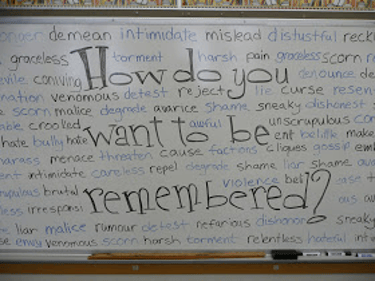 demean intimidate mislead distustful
graceless torment harsh pain graceless scorn
How do you
coniving denounce
venomous detest reject lie curse
scorn malice degrade avarice shame sneaky dishonest
crooked awful unscrupulous
want to be
hate bully hate ent belittle
menace threaten cause factions cliques gossip
intimidate careless repel degrade shame liar shame
brutal violence
remembered?
irresponsi
liar malice rumour detest nefarious dishonor sneaky
envy venomous scorn harsh torment relentless hateful